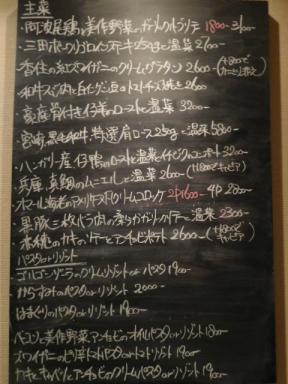 主菜
・阿波尾鶏と美作野菜の 1800- 3100-
・三田ポークグリルオンステーキ250gと温菜 2700-
・香住の紅ズワイガニのクリームグラタン 2600-(+800で
・和牛スジ肉と白インゲン豆のトマト煮込み焼き 2600-
・骨付き仔羊のローストと温菜 3200-
・宮崎 黒毛和牛 特選肩ロース250g・温菜 5800-
・ハンガリー産 仔鴨のローストと温菜イチジクのコンポート 3200-
・兵庫 真鯛のムニエルと温菜 2600-(+1800でキャビア)
・オマール海老のアメリケーヌクリームコロッケ 2P1600- 4P 2800-
・黒豚三枚バラ肉の 温菜 2300-
・赤穂のカキのソテーとアンチョビポテト 2600-(+1800でキャビア)
パスタorリゾット
・ゴルゴンゾーラのクリームリゾットorパスタ 1900-
・からすみのパスタorリゾット 2000-
・はまぐりのパスタorリゾット 1900-
・ベーコンと美作野菜アンチョビのオイルパスタorリゾット 1800-
・ズワイガニのピリ辛トマトパスタorリゾット 1900-
・カキとキャベツとアンチョビのクリームパスタorリゾット 1900-